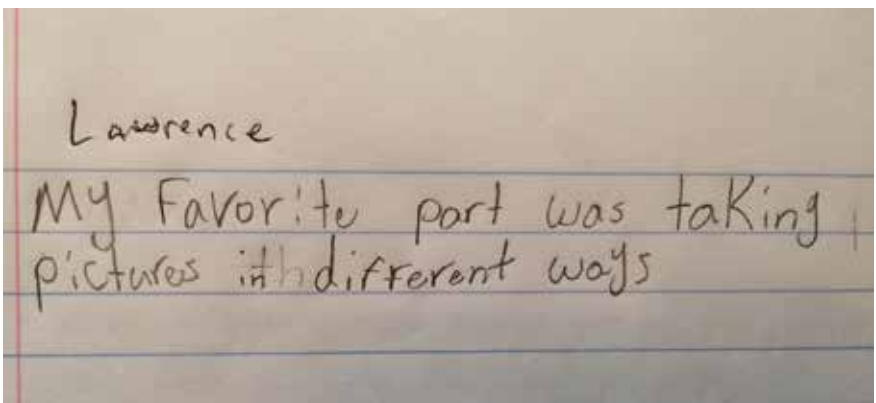 Lawrence
My Favorite part was taking
pictures in different ways